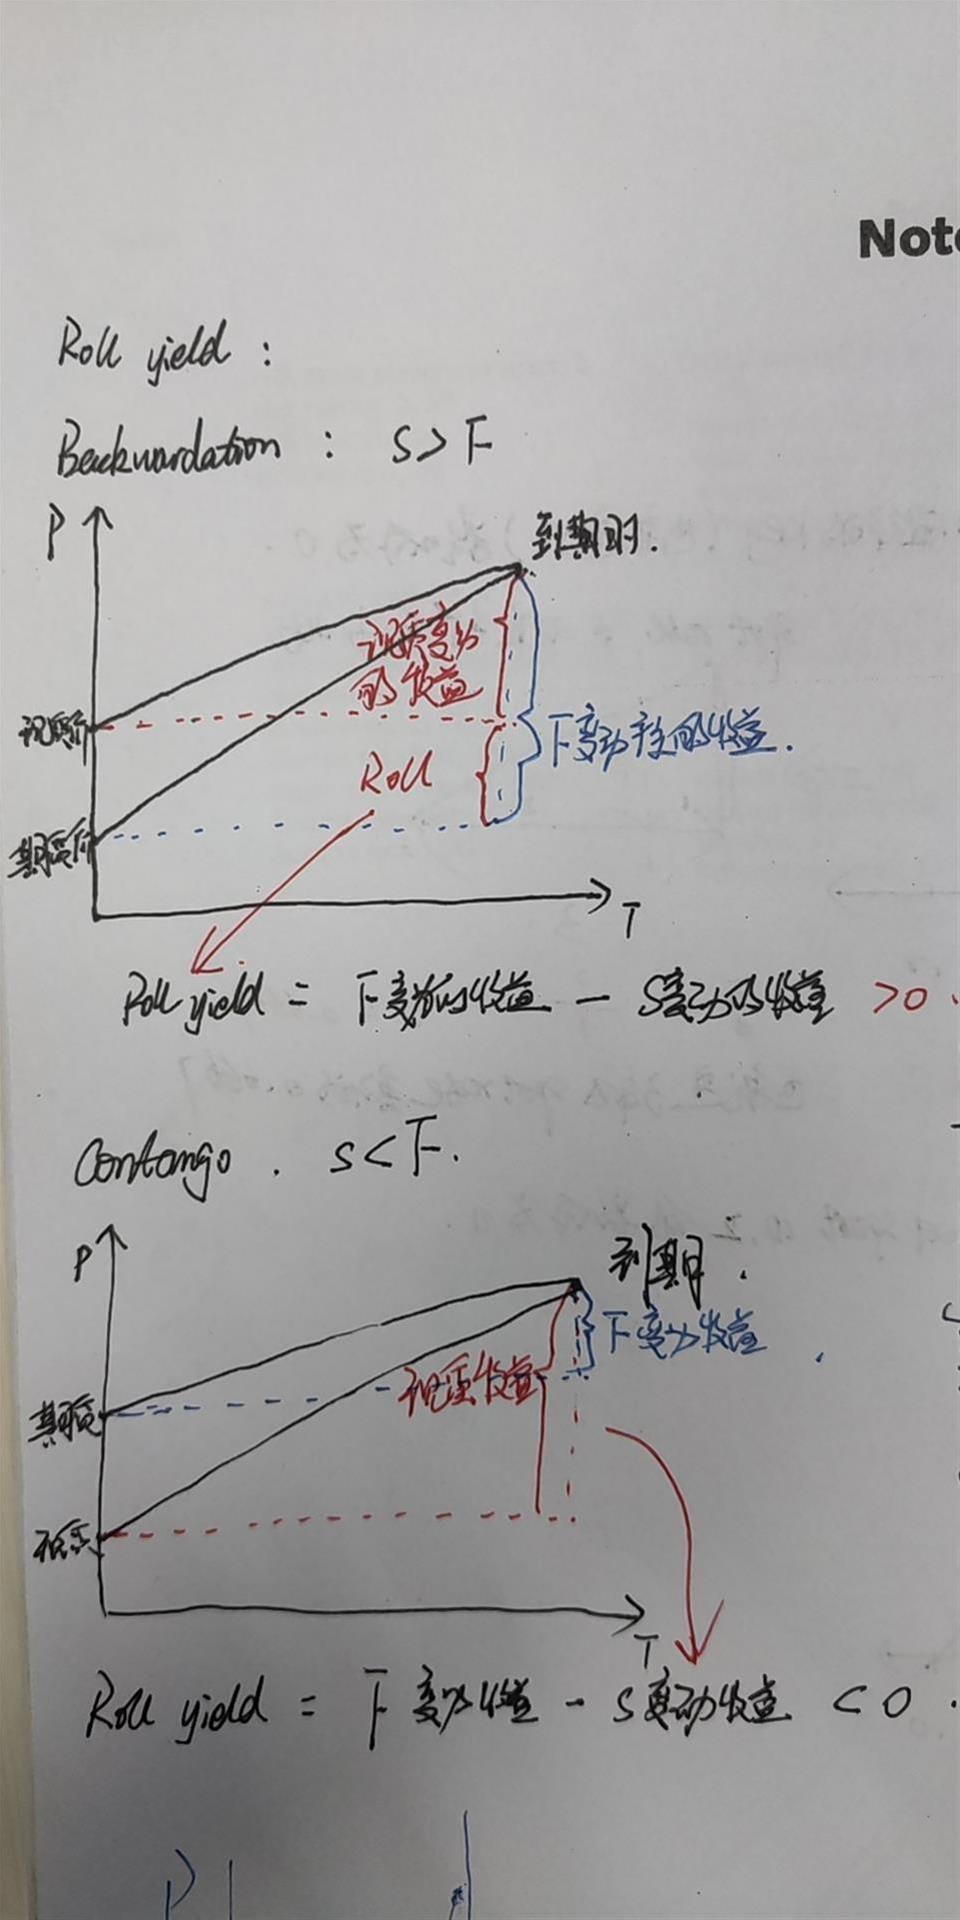 Note
Roll yield :
Backwardation : S > F
P
到期时.
现货变动
的收益
现货价
F变动产生的收益.
Roll
期货价
T
Roll yield = F变动的收益 - S变动的收益 >0.
Contango . S < F.
P
到期 .
F变动收益
现货收益
期货
现货
T
Roll yield = F变动收益 - S变动收益 <0.